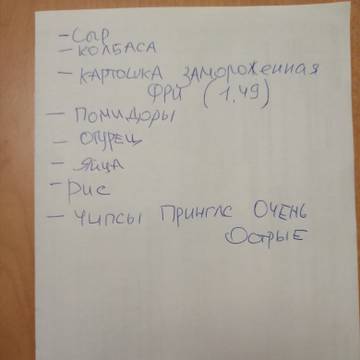 - Сыр
- КОЛБАСА
- КАРТОШКА ЗАМОРОЖЕННАЯ
ФРИ (1,49)
- ПОМИДОРЫ
- ОГУРЕЦ
- ЯЙЦА
- РИС
- ЧИПСЫ ПРИНГЛС ОЧЕНЬ
ОСТРЫЕ